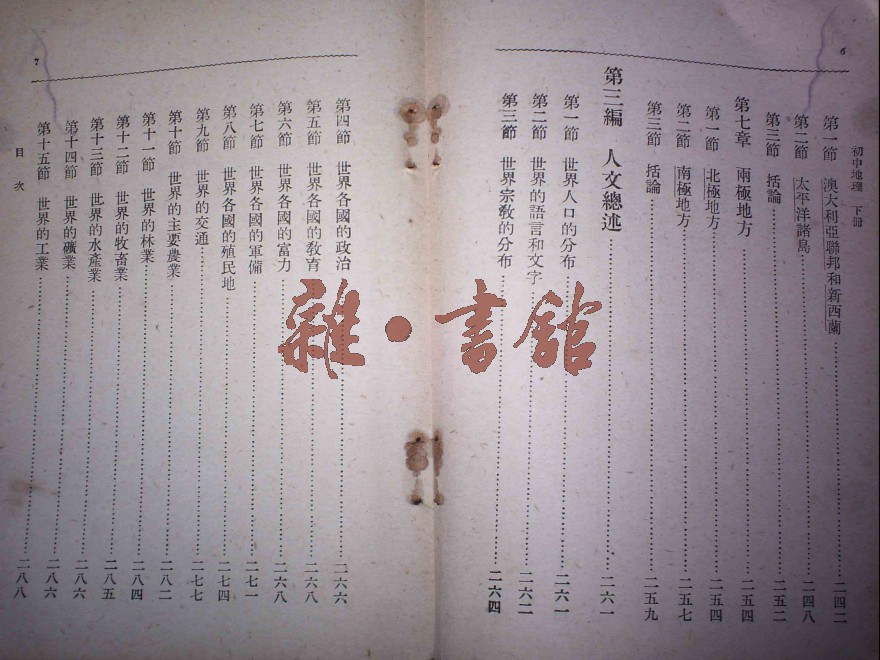 6
初中地理 下冊
第一節 澳大利亞聯邦和新西蘭……二四二
第二節 太平洋諸島……二四八
第三節 括論……二五二
第七章 兩極地方……二五四
第一節 北極地方……二五四
第二節 南極地方……二五七
第三節 括論……二五九
第三編 人文總述……二六一
第一節 世界人口的分布……二六一
第二節 世界的語言和文字……二六二
第三節 世界宗教的分布……二六四
第四節 世界各國的政治……二六六
第五節 世界各國的教育……二六八
第六節 世界各國的富力……二六八
第七節 世界各國的軍備……二七一
第八節 世界各國的殖民地……二七四
第九節 世界的交通……二七七
第十節 世界的主要農業……二八二
第十一節 世界的林業……二八四
第十二節 世界的牧畜業……二八五
第十三節 世界的水產業……二八六
第十四節 世界的礦業……二八六
第十五節 世界的工業……二八八
目次
7
雜·書館